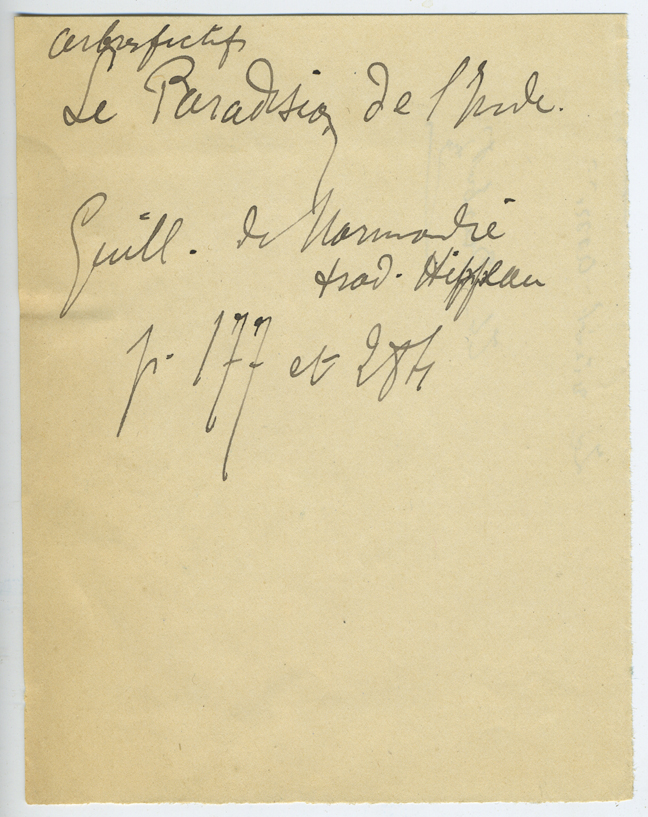 arbres fictifs
Le Paradision de l'Inde.
Guill. de Normandie
trad. Hippeau
p. 177 et 284